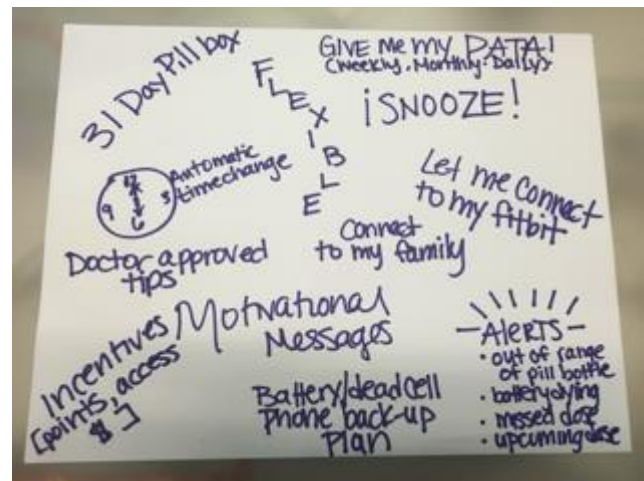 31 Day Pill box
FLEXIBLE
GIVE Me my DATA!
(Weekly, Monthly, Daily)
¡SNOOZE!
12
3
6
9
Automatic
timechange
Let me connect
to my fitbit
Connect
to my family
Doctor approved
tips
Motivational
Messages
Incentives
[points, access
$]
Battery/dead cell
Phone back-up
Plan
ALERTS
• out of range
of pill bottle
• battery dying
• missed dose
• upcuming dose